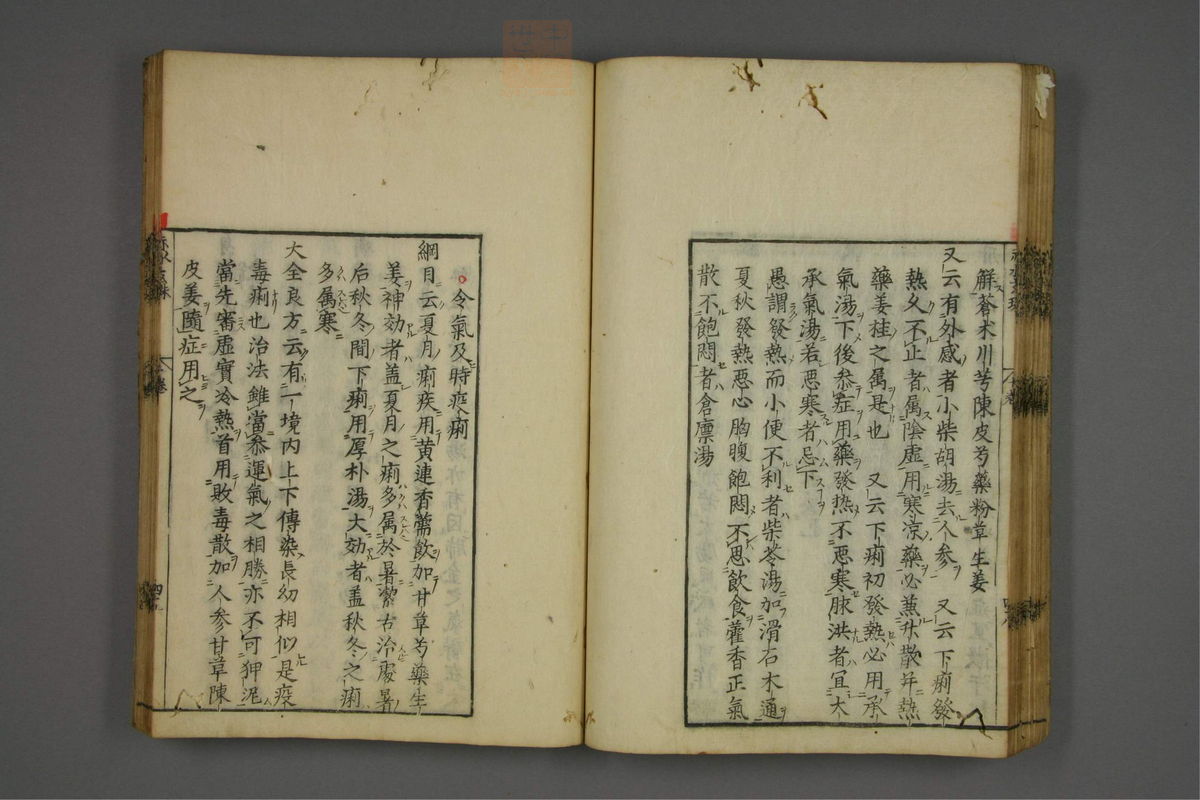 解蒼朮川芎陳皮芍藥粉草生姜
又云有外感者小柴胡湯去人参 又云下痢發
熱久不止者属陰虚用寒涼藥必蒸升散并熱
藥姜桂之属是也 又云下痢初發熱必用承
氣湯下後叅症用藥發热不悪寒脉洪者宜大
承氣湯若悪寒者忌下
愚謂發熱而小便不利者柴苓湯加滑石木通
夏秋發熱悪心胸腹飽悶不思飲食藿香正氣
散不飽悶者倉廪湯
令氣及時疫痢
綱目云夏月痢疾用黄連香薷飲加甘草芍藥生
姜神効者盖夏月之痢多属於暑潔古治處暑
后秋冬間下痢用厚朴湯大効者盖秋冬之痢
多属寒
大全良方云有一境内上下傳染長幼相似是疫
毒痢也治法雖當叅運氣之相勝亦不可狎泥
當先審虚實冷熱首用敗毒散加人参甘草陳
皮姜隨症用之